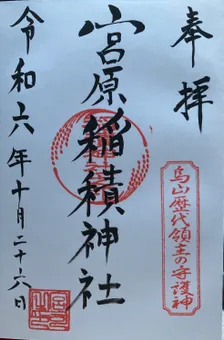 奉拝
烏山歴代領主の守護神
宮原稲積神社
令和六年十月二十六日